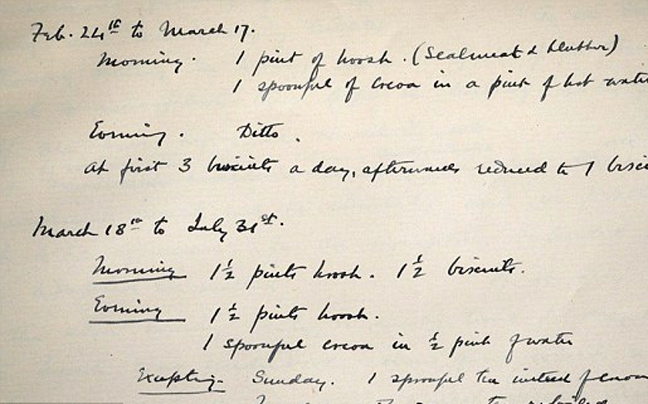 Feb. 24th to March 17.
Morning. 1 pint of hoosh. (Sealmeat & blubber)
1 spoonful of cocoa in a pint of hot water
Evening. Ditto.
At first 3 biscuits a day, afterwards reduced to 1 bisc
March 18th to July 31st.
Morning 1½ pints hoosh. 1½ biscuits.
Evening 1½ pints hoosh.
1 spoonful cocoa in ½ pint of water
Excepting. Sunday. 1 spoonful tea instead of